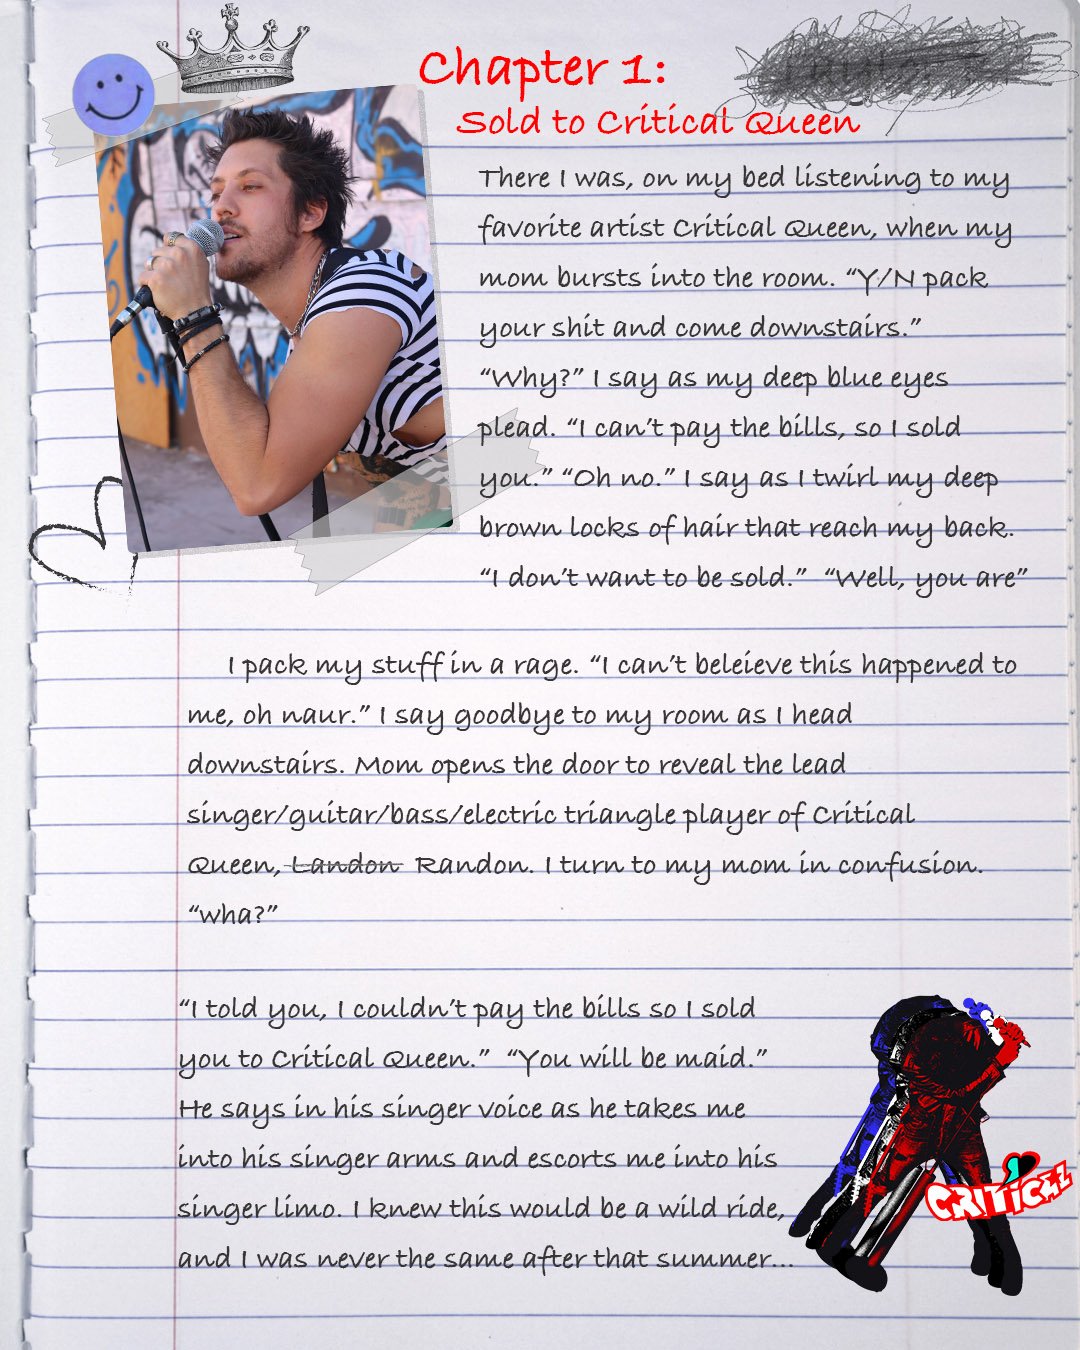 Chapter 1:
Sold to Critical Queen
There I was, on my bed listening to my
favorite artist Critical Queen, when my
mom bursts into the room. “Y/N pack
your shit and come downstairs.”
“Why?” I say as my deep blue eyes
plead. “I can’t pay the bills, so I sold
you.” “Oh no.” I say as I twirl my deep
brown locks of hair that reach my back.
“I don’t want to be sold.” “Well, you are”
I pack my stuff in a rage. “I can’t beleieve this happened to
me, oh naur.” I say goodbye to my room as I head
downstairs. Mom opens the door to reveal the lead
singer/guitar/bass/electric triangle player of Critical
Queen, Landon Randon. I turn to my mom in confusion.
“wha?”
“I told you, I couldn’t pay the bills so I sold
you to Critical Queen.” “You will be maid.”
He says in his singer voice as he takes me
into his singer arms and escorts me into his
singer limo. I knew this would be a wild ride,
and I was never the same after that summer...
CRITICAL